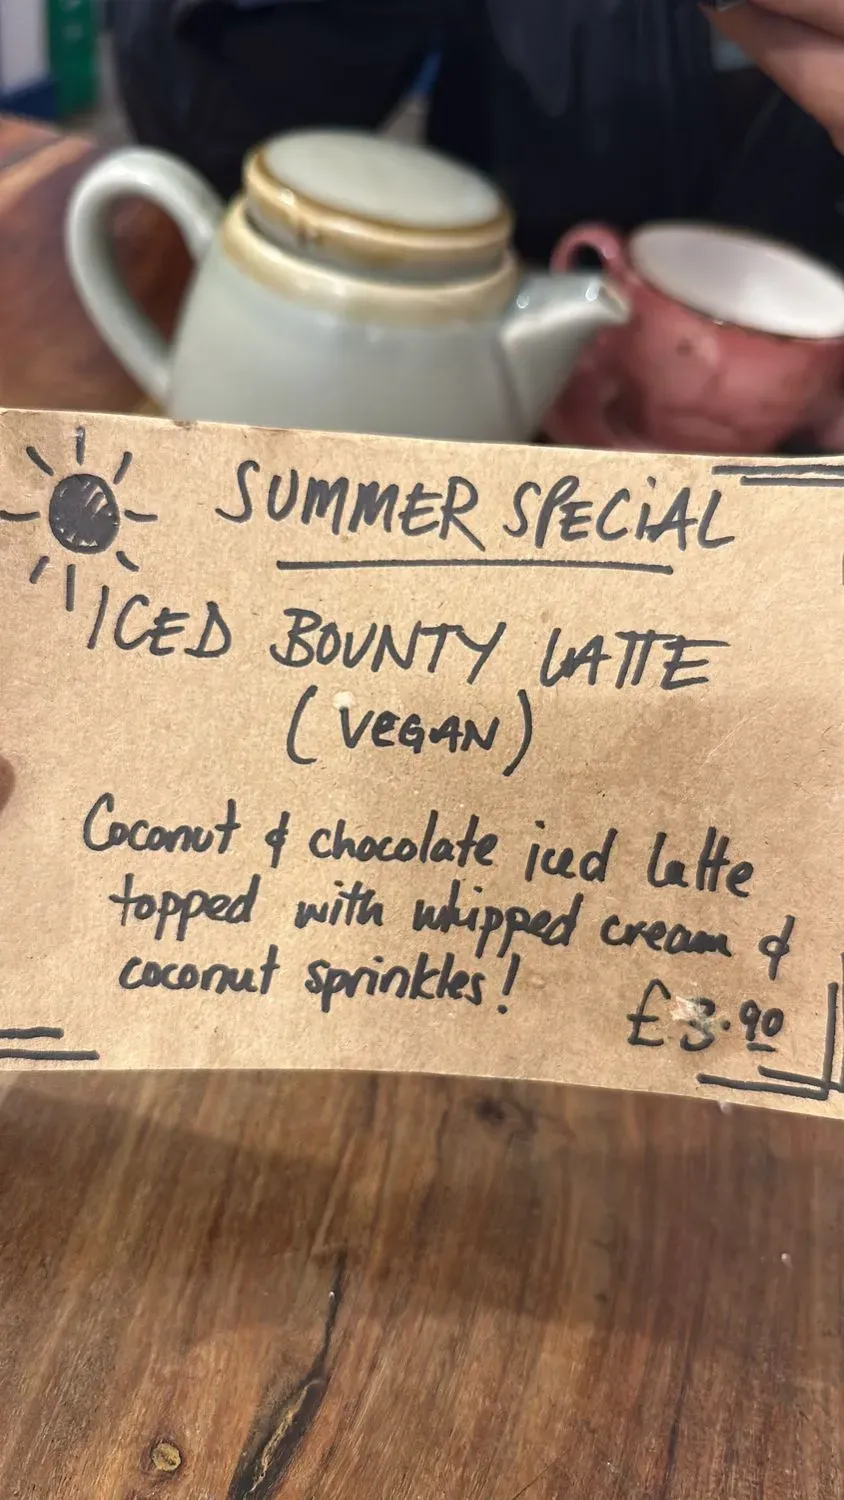 SUMMER SPECiAL
ICED BOUNTY LATTE
(VEGAN)
Coconut & chocolate iced latte
topped with whipped cream &
coconut sprinkles!
£3.90